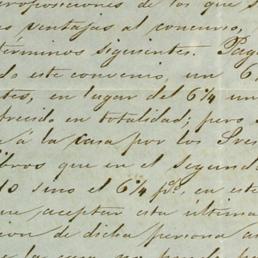 proposiciones de los que s
as ventajas al concurso,
términos siguientes. Pag
do este convenio, un 6
tes, en lugar del 6¼ un
frecido en totalidad; pero s
e á la casa por los Sres
ibros que en el segund
10 sino el 6¼ p%, en est
que aceptar esta última
cion de dicha persona a